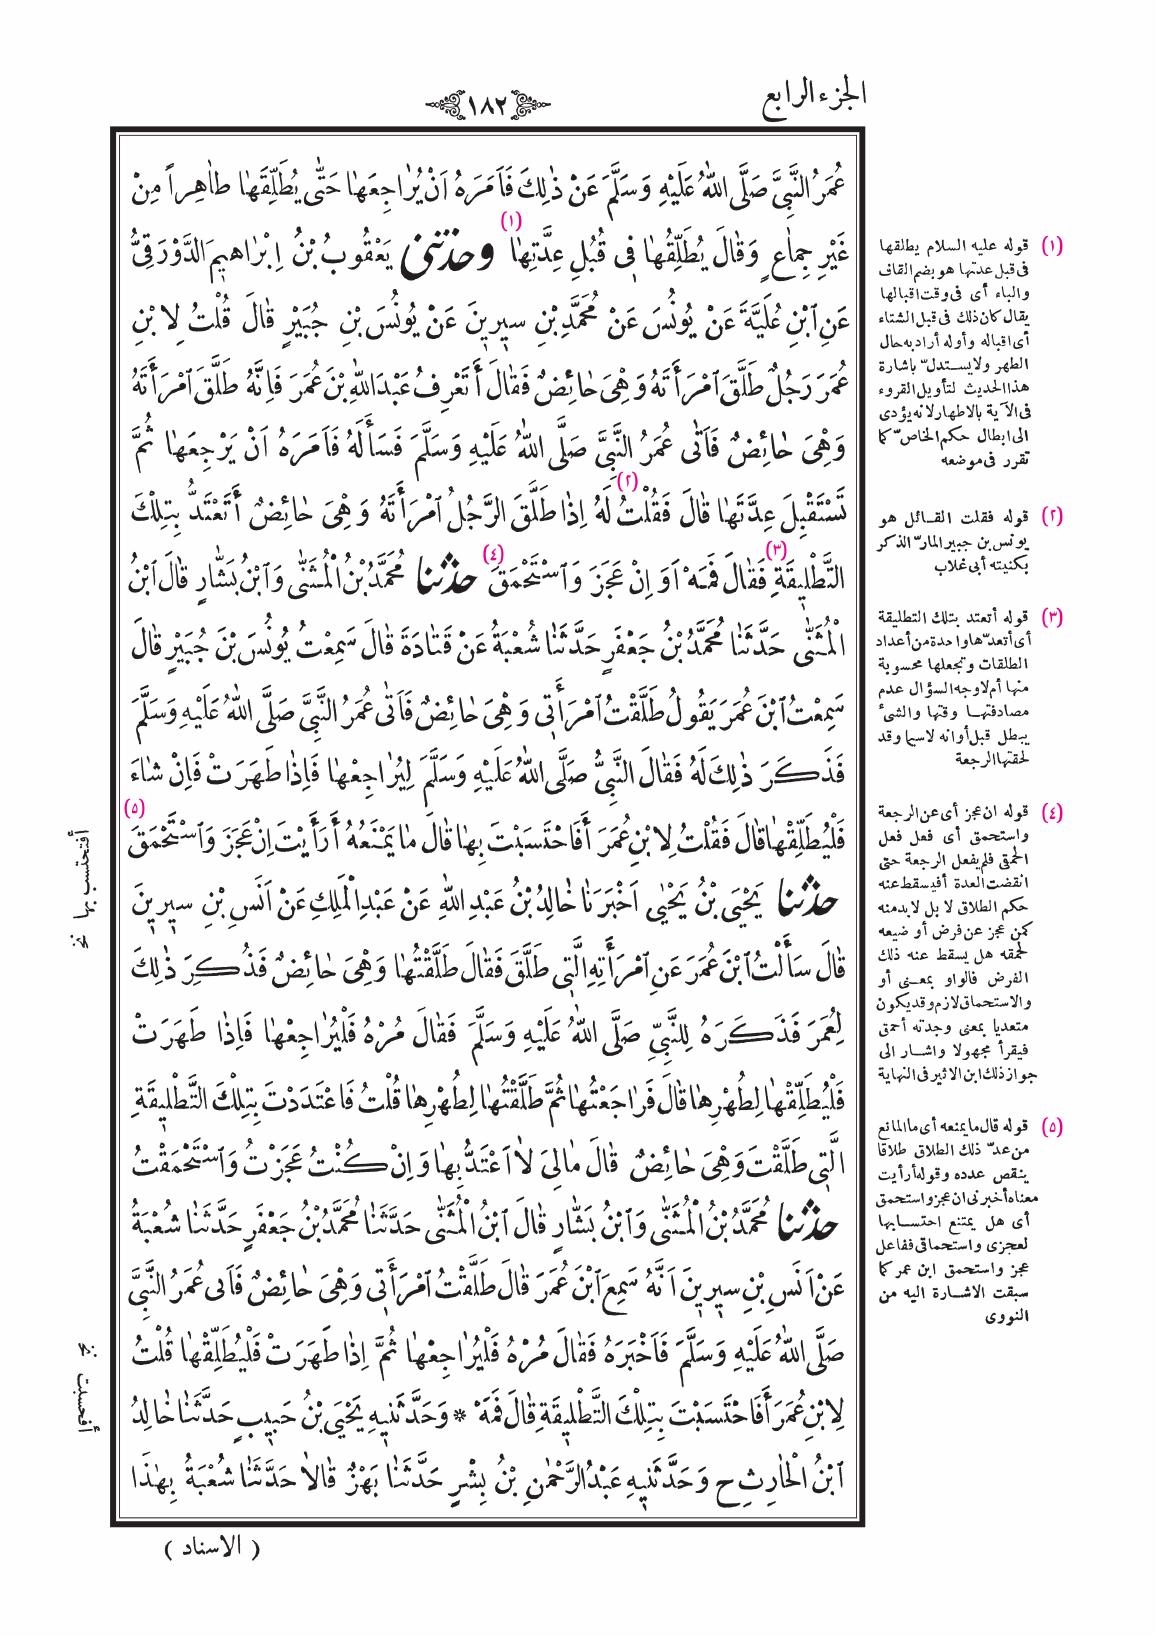 الجزء الرابع
١٨٢
عُمَرُ النَّبِيَّ صَلَّى اللهُ عَلَيْهِ وَسَلَّمَ عَنْ ذٰلِكَ فَاَمَرَهُ اَنْ يُرَاجِعَهَا حَتّٰى يُطَلِّقَهَا طَاهِراً مِنْ
غَيْرِ جِمَاعٍ وَقَالَ يُطَلِّقُهَا فِى قُبُلِ عِدَّتِهَا (١) وحدثنى يَعْقُوبُ بْنُ اِبْرَاهِيمَ الدَّوْرَقِىُّ
عَنِ ابْنِ عُلَيَّةَ عَنْ يُونُسَ عَنْ مُحَمَّدِ بْنِ سِيرِينَ عَنْ يُونُسَ بْنِ جُبَيْرٍ قَالَ قُلْتُ لِابْنِ
عُمَرَ رَجُلٌ طَلَّقَ امْرَأَتَهُ وَهْىَ حَائِضٌ فَقَالَ أَتَعْرِفُ عَبْدَ اللهِ بْنَ عُمَرَ فَاِنَّهُ طَلَّقَ امْرَأَتَهُ
وَهْىَ حَائِضٌ فَاَتٰى عُمَرُ النَّبِىَّ صَلَّى اللهُ عَلَيْهِ وَسَلَّمَ فَسَأَلَهُ فَاَمَرَهُ اَنْ يَرْجِعَهَا ثُمَّ
تَسْتَقْبِلَ عِدَّتَهَا قَالَ فَقُلْتُ (٢) لَهُ اِذَا طَلَّقَ الرَّجُلُ امْرَأَتَهُ وَهْىَ حَائِضٌ أَتَعْتَدُّ بِتِلْكَ
التَّطْلِيقَةِ (٣) فَقَالَ فَمَهْ اَوَ اِنْ عَجَزَ وَاسْتَحْمَقَ (٤) حدثنا مُحَمَّدُ بْنُ الْمُثَنّٰى وَابْنُ بَشَّارٍ قَالَ ابْنُ
الْمُثَنّٰى حَدَّثَنَا مُحَمَّدُ بْنُ جَعْفَرٍ حَدَّثَنَا شُعْبَةُ عَنْ قَتَادَةَ قَالَ سَمِعْتُ يُونُسَ بْنَ جُبَيْرٍ قَالَ
سَمِعْتُ ابْنَ عُمَرَ يَقُولُ طَلَّقْتُ امْرَأَتِى وَهْىَ حَائِضٌ فَاَتٰى عُمَرُ النَّبِىَّ صَلَّى اللهُ عَلَيْهِ وَسَلَّمَ
فَذَكَرَ ذٰلِكَ لَهُ فَقَالَ النَّبِىُّ صَلَّى اللهُ عَلَيْهِ وَسَلَّمَ لِيُرَاجِعْهَا فَاِذَا طَهَرَتْ فَاِنْ شَاءَ
فَلْيُطَلِّقْهَا قَالَ فَقُلْتُ لِابْنِ عُمَرَ أَفَاحْتَسَبْتَ بِهَا قَالَ مَا يَمْنَعُهُ أَرَأَيْتَ اِنْ عَجَزَ وَاسْتَحْمَقَ (٥)
حدثنا يَحْيَى بْنُ يَحْيٰى اَخْبَرَنَا خَالِدُ بْنُ عَبْدِ اللهِ عَنْ عَبْدِ الْمَلِكِ عَنْ اَنَسِ بْنِ سِيرِينَ
قَالَ سَأَلْتُ ابْنَ عُمَرَ عَنِ امْرَأَتِهِ الَّتِى طَلَّقَ فَقَالَ طَلَّقْتُهَا وَهْىَ حَائِضٌ فَذُكِرَ ذٰلِكَ
لِعُمَرَ فَذَكَرَهُ لِلنَّبِىِّ صَلَّى اللهُ عَلَيْهِ وَسَلَّمَ فَقَالَ مُرْهُ فَلْيُرَاجِعْهَا فَاِذَا طَهَرَتْ
فَلْيُطَلِّقْهَا لِطُهْرِهَا قَالَ فَرَاجَعْتُهَا ثُمَّ طَلَّقْتُهَا لِطُهْرِهَا قُلْتُ فَاعْتَدَدْتَ بِتِلْكَ التَّطْلِيقَةِ
الَّتِى طَلَّقْتَ وَهْىَ حَائِضٌ قَالَ مَالِىَ لَا اَعْتَدُّ بِهَا وَاِنْ كُنْتُ عَجَزْتُ وَاسْتَحْمَقْتُ
حدثنا مُحَمَّدُ بْنُ الْمُثَنّٰى وَابْنُ بَشَّارٍ قَالَ ابْنُ الْمُثَنّٰى حَدَّثَنَا مُحَمَّدُ بْنُ جَعْفَرٍ حَدَّثَنَا شُعْبَةُ
عَنْ اَنَسِ بْنِ سِيرِينَ اَنَّهُ سَمِعَ ابْنَ عُمَرَ قَالَ طَلَّقْتُ امْرَأَتِى وَهْىَ حَائِضٌ فَاَتٰى عُمَرُ النَّبِىَّ
صَلَّى اللهُ عَلَيْهِ وَسَلَّمَ فَاَخْبَرَهُ فَقَالَ مُرْهُ فَلْيُرَاجِعْهَا ثُمَّ اِذَا طَهَرَتْ فَلْيُطَلِّقْهَا قُلْتُ
لِابْنِ عُمَرَ أَفَاحْتَسَبْتَ بِتِلْكَ التَّطْلِيقَةِ قَالَ فَمَهْ * وَحَدَّثَنِيهِ يَحْيَى بْنُ حَبِيبٍ حَدَّثَنَا خَالِدُ
ابْنُ الْحَارِثِ ح وَحَدَّثَنِيهِ عَبْدُ الرَّحْمٰنِ بْنُ بِشْرٍ حَدَّثَنَا بَهْزٌ قَالَا حَدَّثَنَا شُعْبَةُ بِهٰذَا
( الاسناد )
(١) قوله عليه السلام يطلقها
فى قبل عدتها هو بضم القاف
والباء أى فى وقت اقبالها
يقال كان ذلك فى قبل الشتاء
أى اقباله وأوله أراد به حال
الطهر ولا يستدلّ باشارة
هذا الحديث لتأويل القروء
فى الآية بالاطهار لانه يؤدى
الى ابطال حكم الخاصّ كما
تقرر فى موضعه
(٢) قوله فقلت القائل هو
يونس بن جبير المارّ الذكر
بكنيته أبى غلاب
(٣) قوله أتعتد بتلك التطليقة
أى أتعدّها واحدة من أعداد
الطلقات وتجعلها محسوبة
منها أم لا وجه السؤال عدم
مصادفتها وقتها والشئ
يبطل قبل أوانه لاسيما وقد
لحقتها الرجعة
(٤) قوله ان عجز أى عن الرجعة
واستحمق أى فعل فعل
الحمقى فلم يفعل الرجعة حتى
انقضت العدة أفيسقط عنه
حكم الطلاق لا بل لابد منه
كمن عجز عن فرض أو ضيعه
لحمقه هل يسقط عنه ذلك
الفرض فالواو بمعنى أو
والاستحماق لازم وقد يكون
متعديا بمعنى وجدته أحمق
فيقرأ مجهولا واشار الى
جواز ذلك ابن الاثير فى النهاية
(٥) قوله قال ما يمنعه أى ما المانع
من عدّ ذلك الطلاق طلاقا
ينقص عدده وقوله أرأيت
معناه أخبرنى ان عجز واستحمق
أى هل يمتنع احتسابها
لعجزى واستحماقى ففاعل
عجز واستحمق ابن عمر كما
سبقت الاشارة اليه من
النووى
أفتحتسب بها نخ
أفحسبت نخ